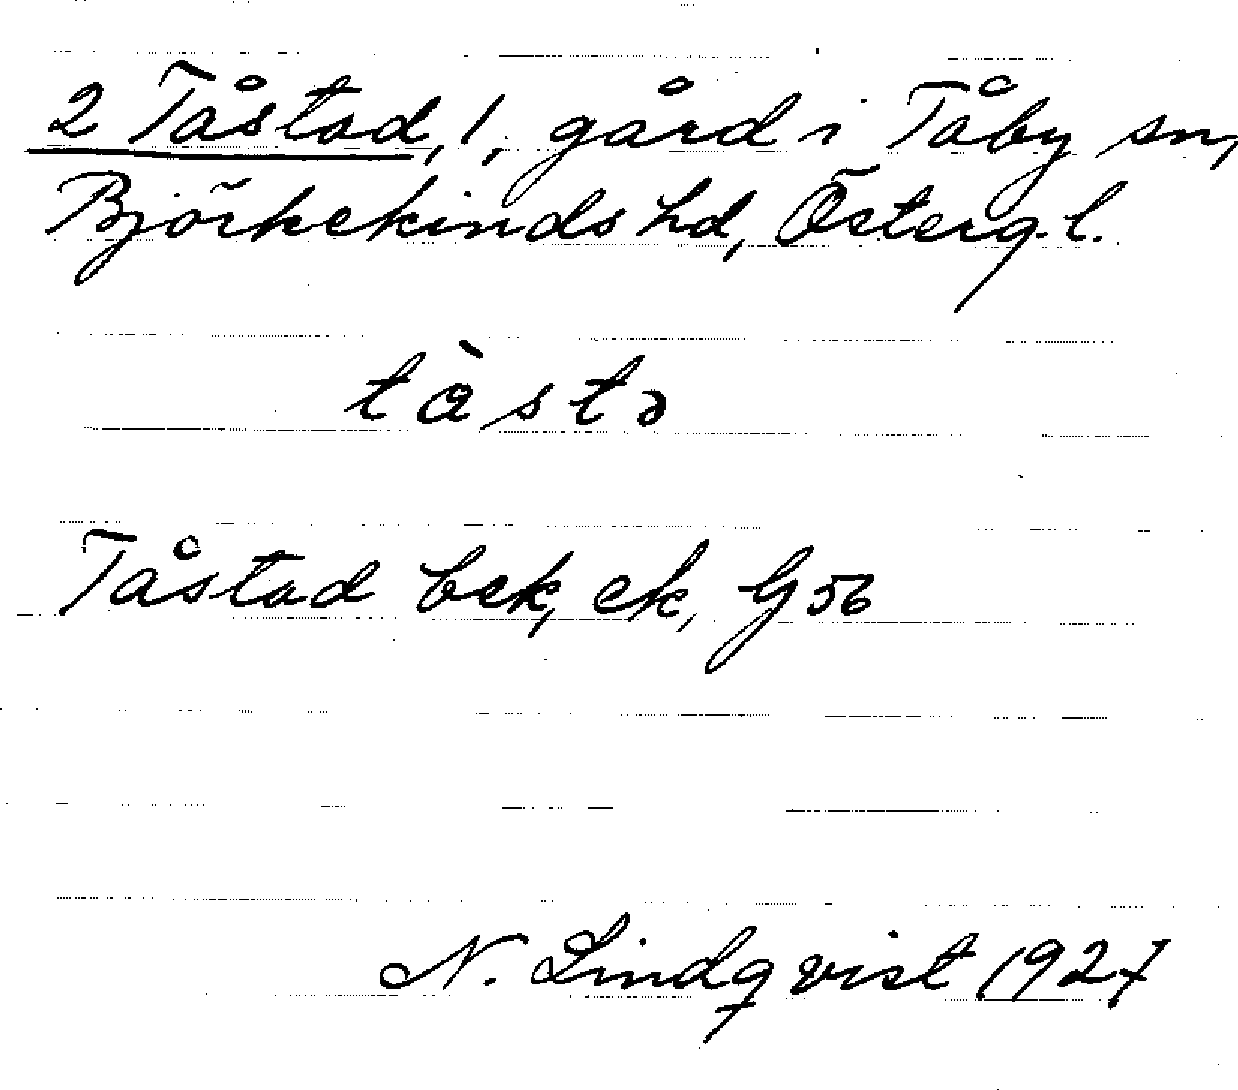 2 Tåstad, 1, gård i Tåby sn,
Björkekinds hd, Östergl.
tåstə
Tåstad bek, ek, G 56
N. Lindqvist 1927